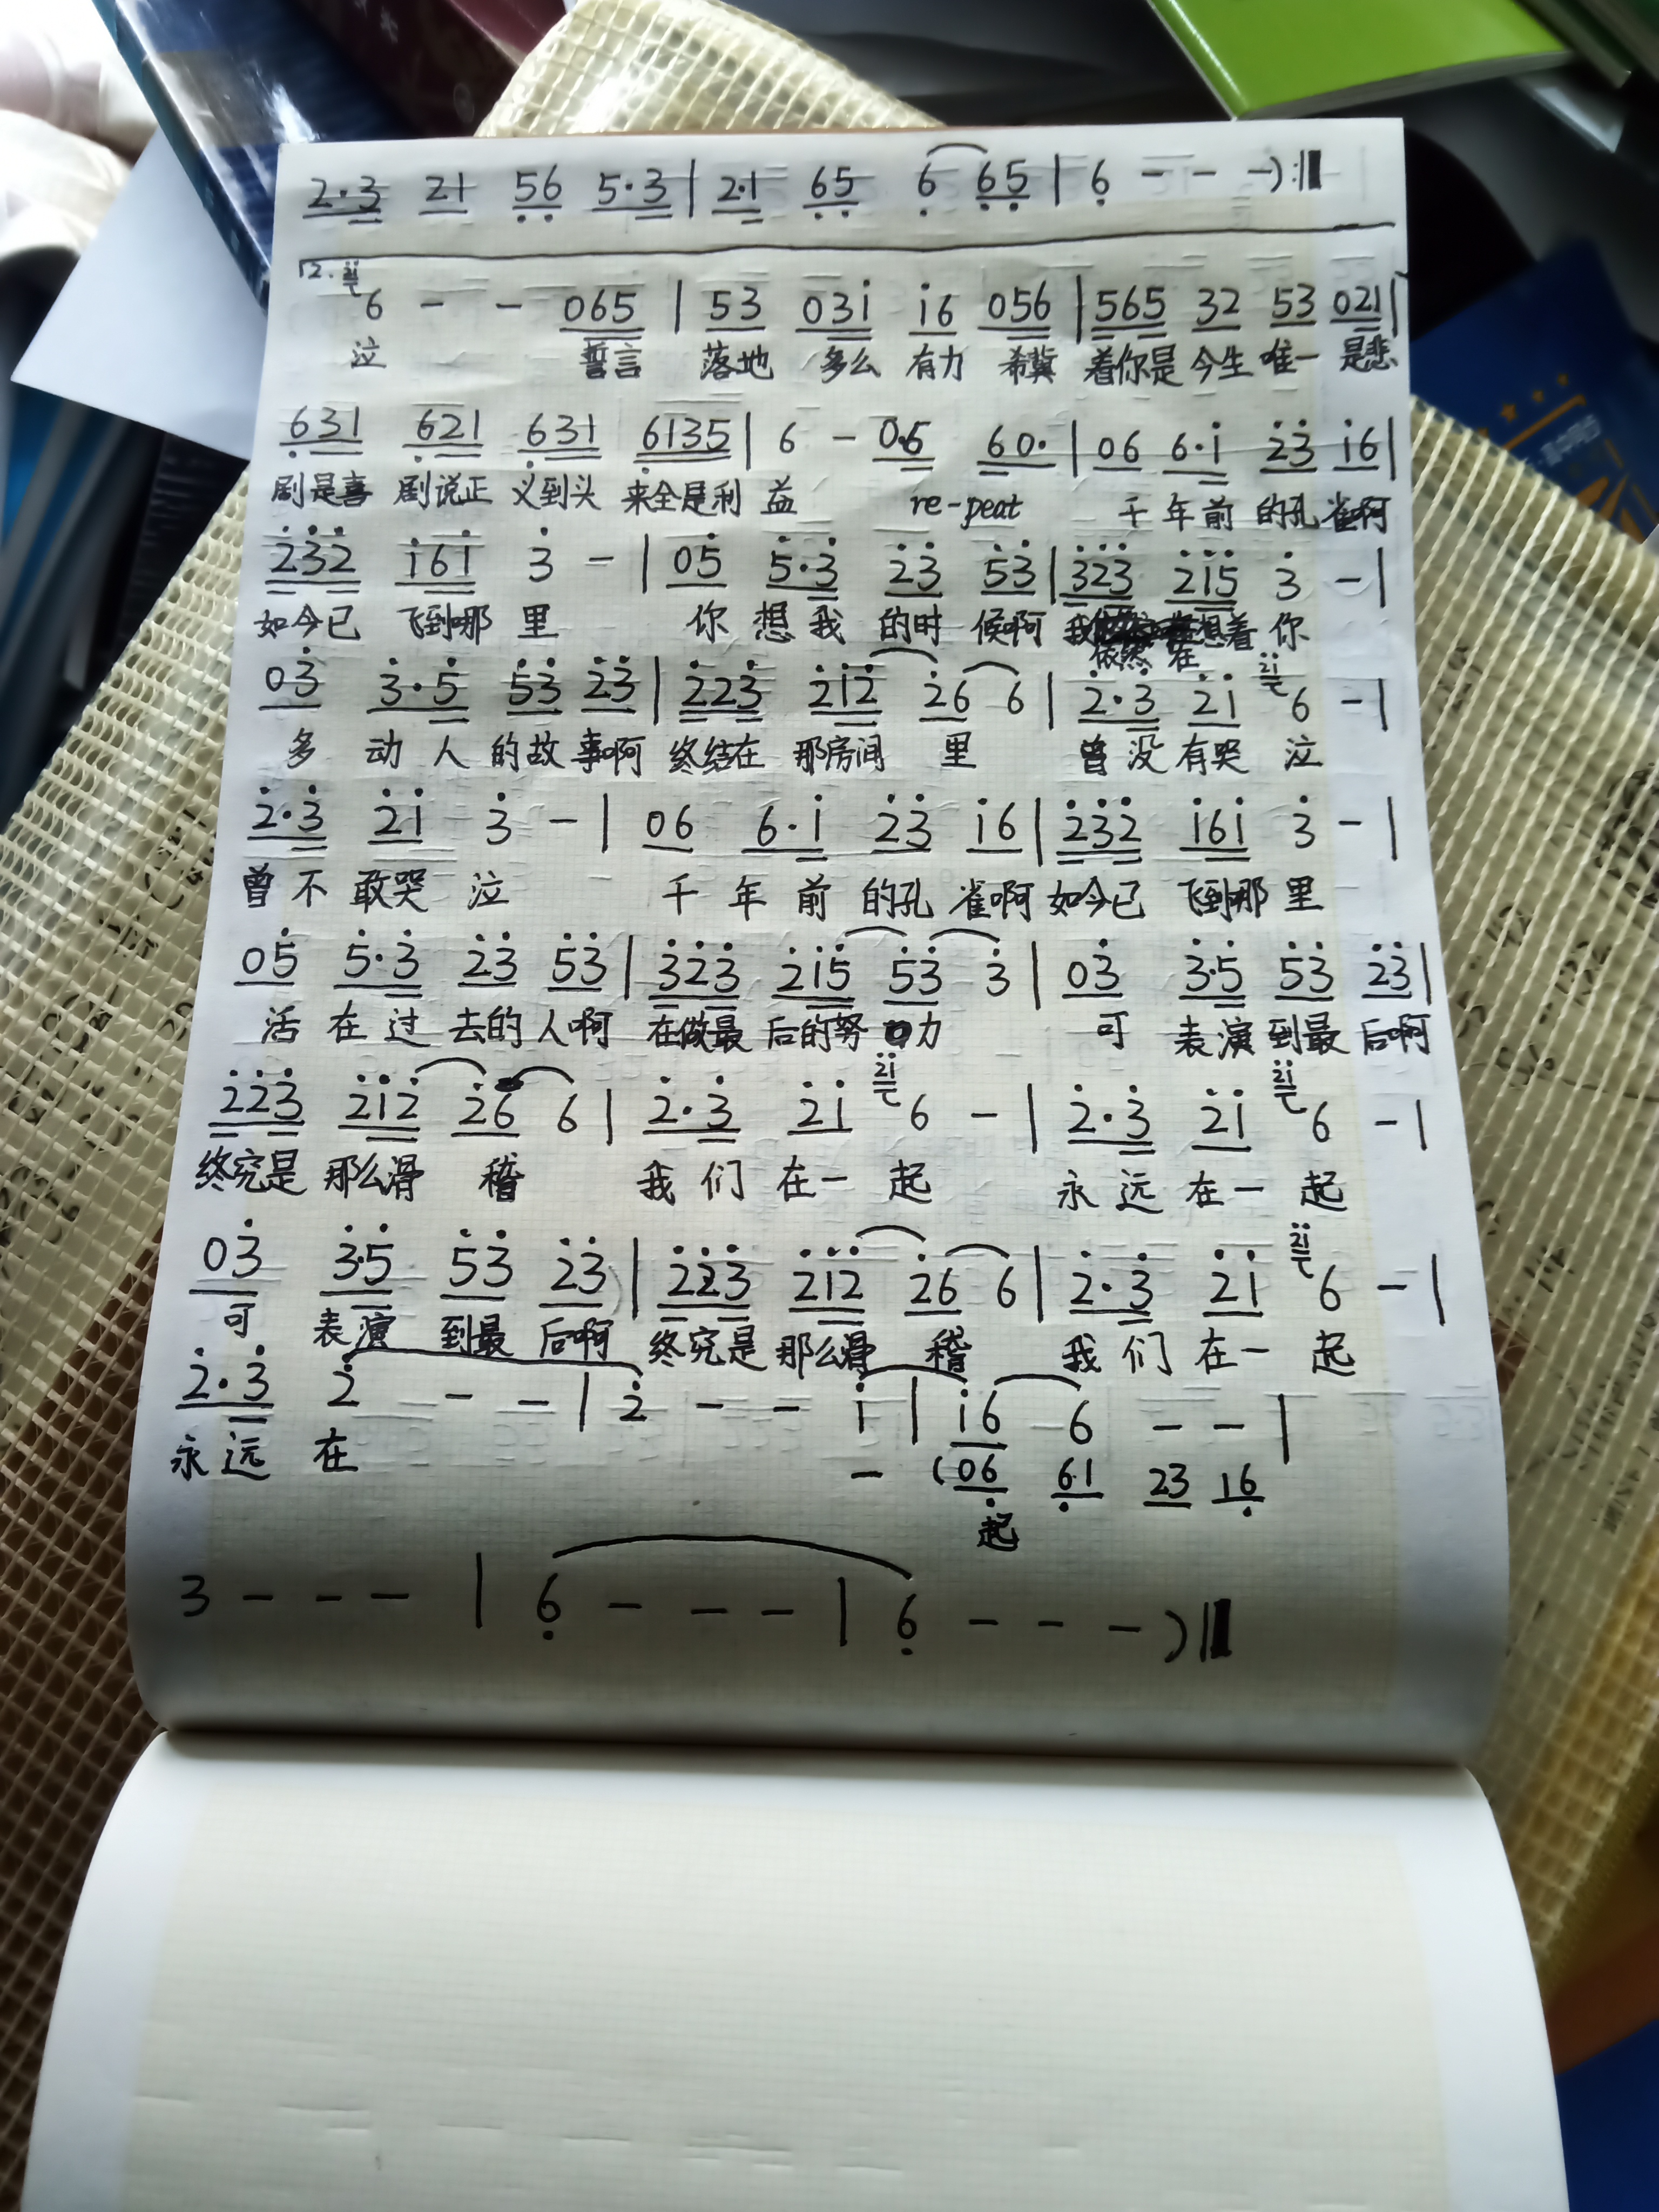 2·3 21 56 5·3 | 2·1 65 6 65 | 6 - - -) :‖
2. 21 6 - - 065 | 53 031 16 056 | 565 32 53 021 |
泣 誓言 落地 多么 有力 希冀 着你是 今生 唯一 是悲
631 621 631 6135 | 6 - 0·6 60· | 06 6·1 23 16 |
剧是喜 剧说正 义到头 来全是利 益 re-peat 千 年前 的孔 雀啊
232 161 3 - | 05 5·3 23 53 | 323 215 3 - |
如今已 飞到哪 里 你 想我 的时 候啊 我 想着 你
依然 在
03 3·5 53 23 | 223 212 26 6 | 2·3 21 21 6 - |
多 动人 的故 事啊 终结在 那房间 里 曾没 有哭 泣
2·3 21 3 - | 06 6·1 23 16 | 232 161 3 - |
曾不 敢哭 泣 千 年前 的孔 雀啊 如今已 飞到哪 里
05 5·3 23 53 | 323 215 53 3 | 03 3·5 53 23 |
活 在过 去的 人啊 在做最 后的努 力 可 表演 到最 后啊
223 212 26 6 | 2·3 21 21 6 - | 2·3 21 21 6 - |
终究是 那么滑 稽 我们 在一 起 永远 在一 起
03 3·5 53 23 | 223 212 26 6 | 2·3 21 21 6 - |
可 表演 到最 后啊 终究是 那么滑 稽 我们 在一 起
2·3 2 - - | 2 - - 1 | 16 6 - - |
永远 在 - (06 6·1 23 16
起
3 - - - | 6 - - - | 6 - - -) ‖